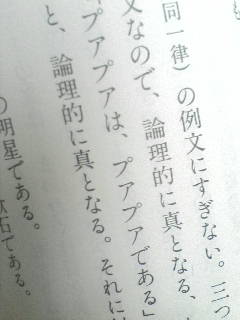 同一律）の例文にすぎない。三つ
文なので、論理的に真となる、
プアプアは、プアプアである」
と、論理的に真となる。それに
の明星である。
石である。